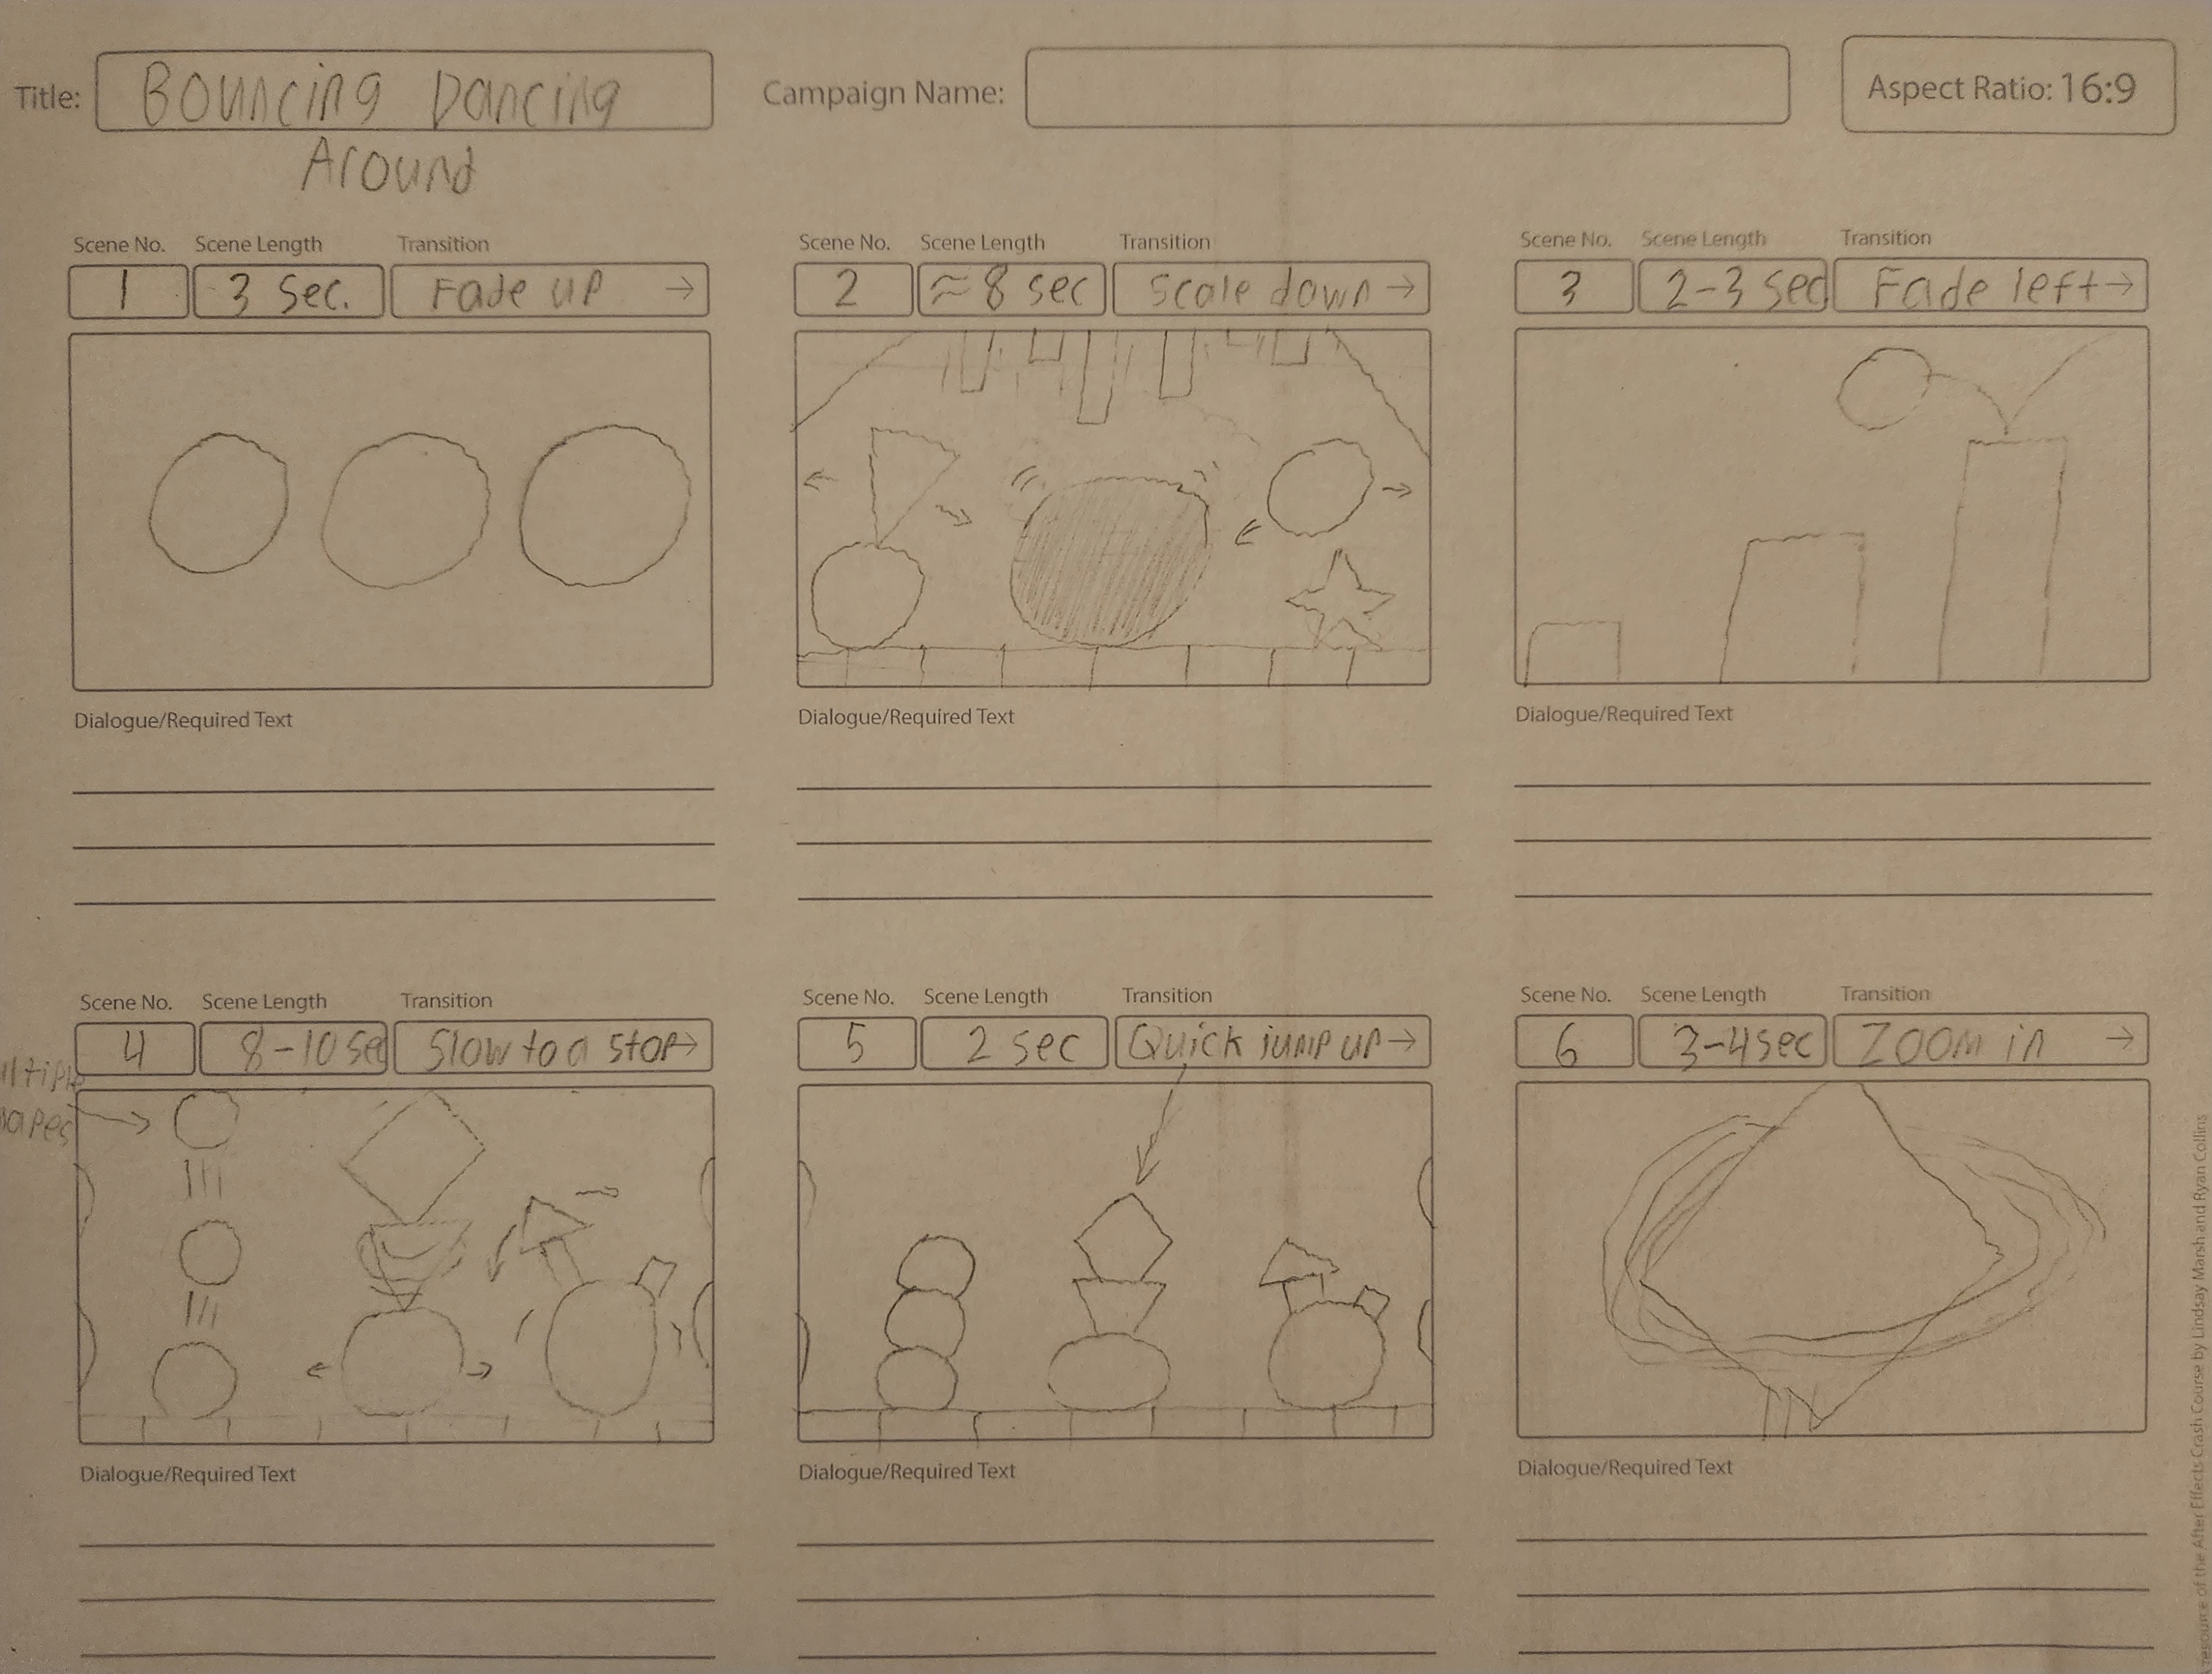 Title: Bouncing Dancing Around
Campaign Name:
Aspect Ratio: 16:9
Scene No. Scene Length Transition
1 3 Sec. Fade up →
Dialogue/Required Text
Scene No. Scene Length Transition
2 ≈8 sec Scale down →
Dialogue/Required Text
Scene No. Scene Length Transition
3 2-3 sec Fade left →
Dialogue/Required Text
Scene No. Scene Length Transition
4 8-10 sec Slow to a stop →
Dialogue/Required Text
Scene No. Scene Length Transition
5 2 sec Quick jump up →
Dialogue/Required Text
Scene No. Scene Length Transition
6 3-4 sec Zoom in →
Dialogue/Required Text
of the After Effects Crash Course by Lindsay Marsh and Ryan Collins